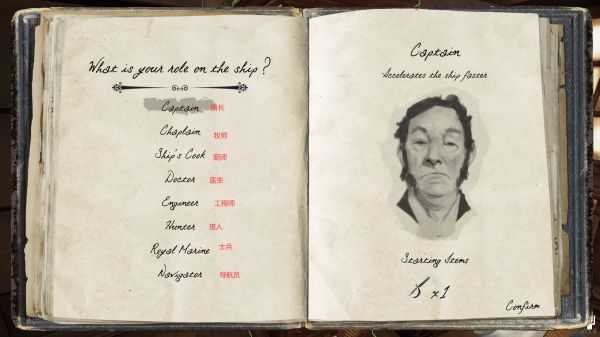 What is your role on the ship?
Captain 船长
Chaplain 牧师
Ship's Cook 厨师
Doctor 医生
Engineer 工程师
Hunter 猎人
Royal Marine 士兵
Navigator 导航员
Captain
Accelerates the ship faster
Starting Items
x1
Confirm